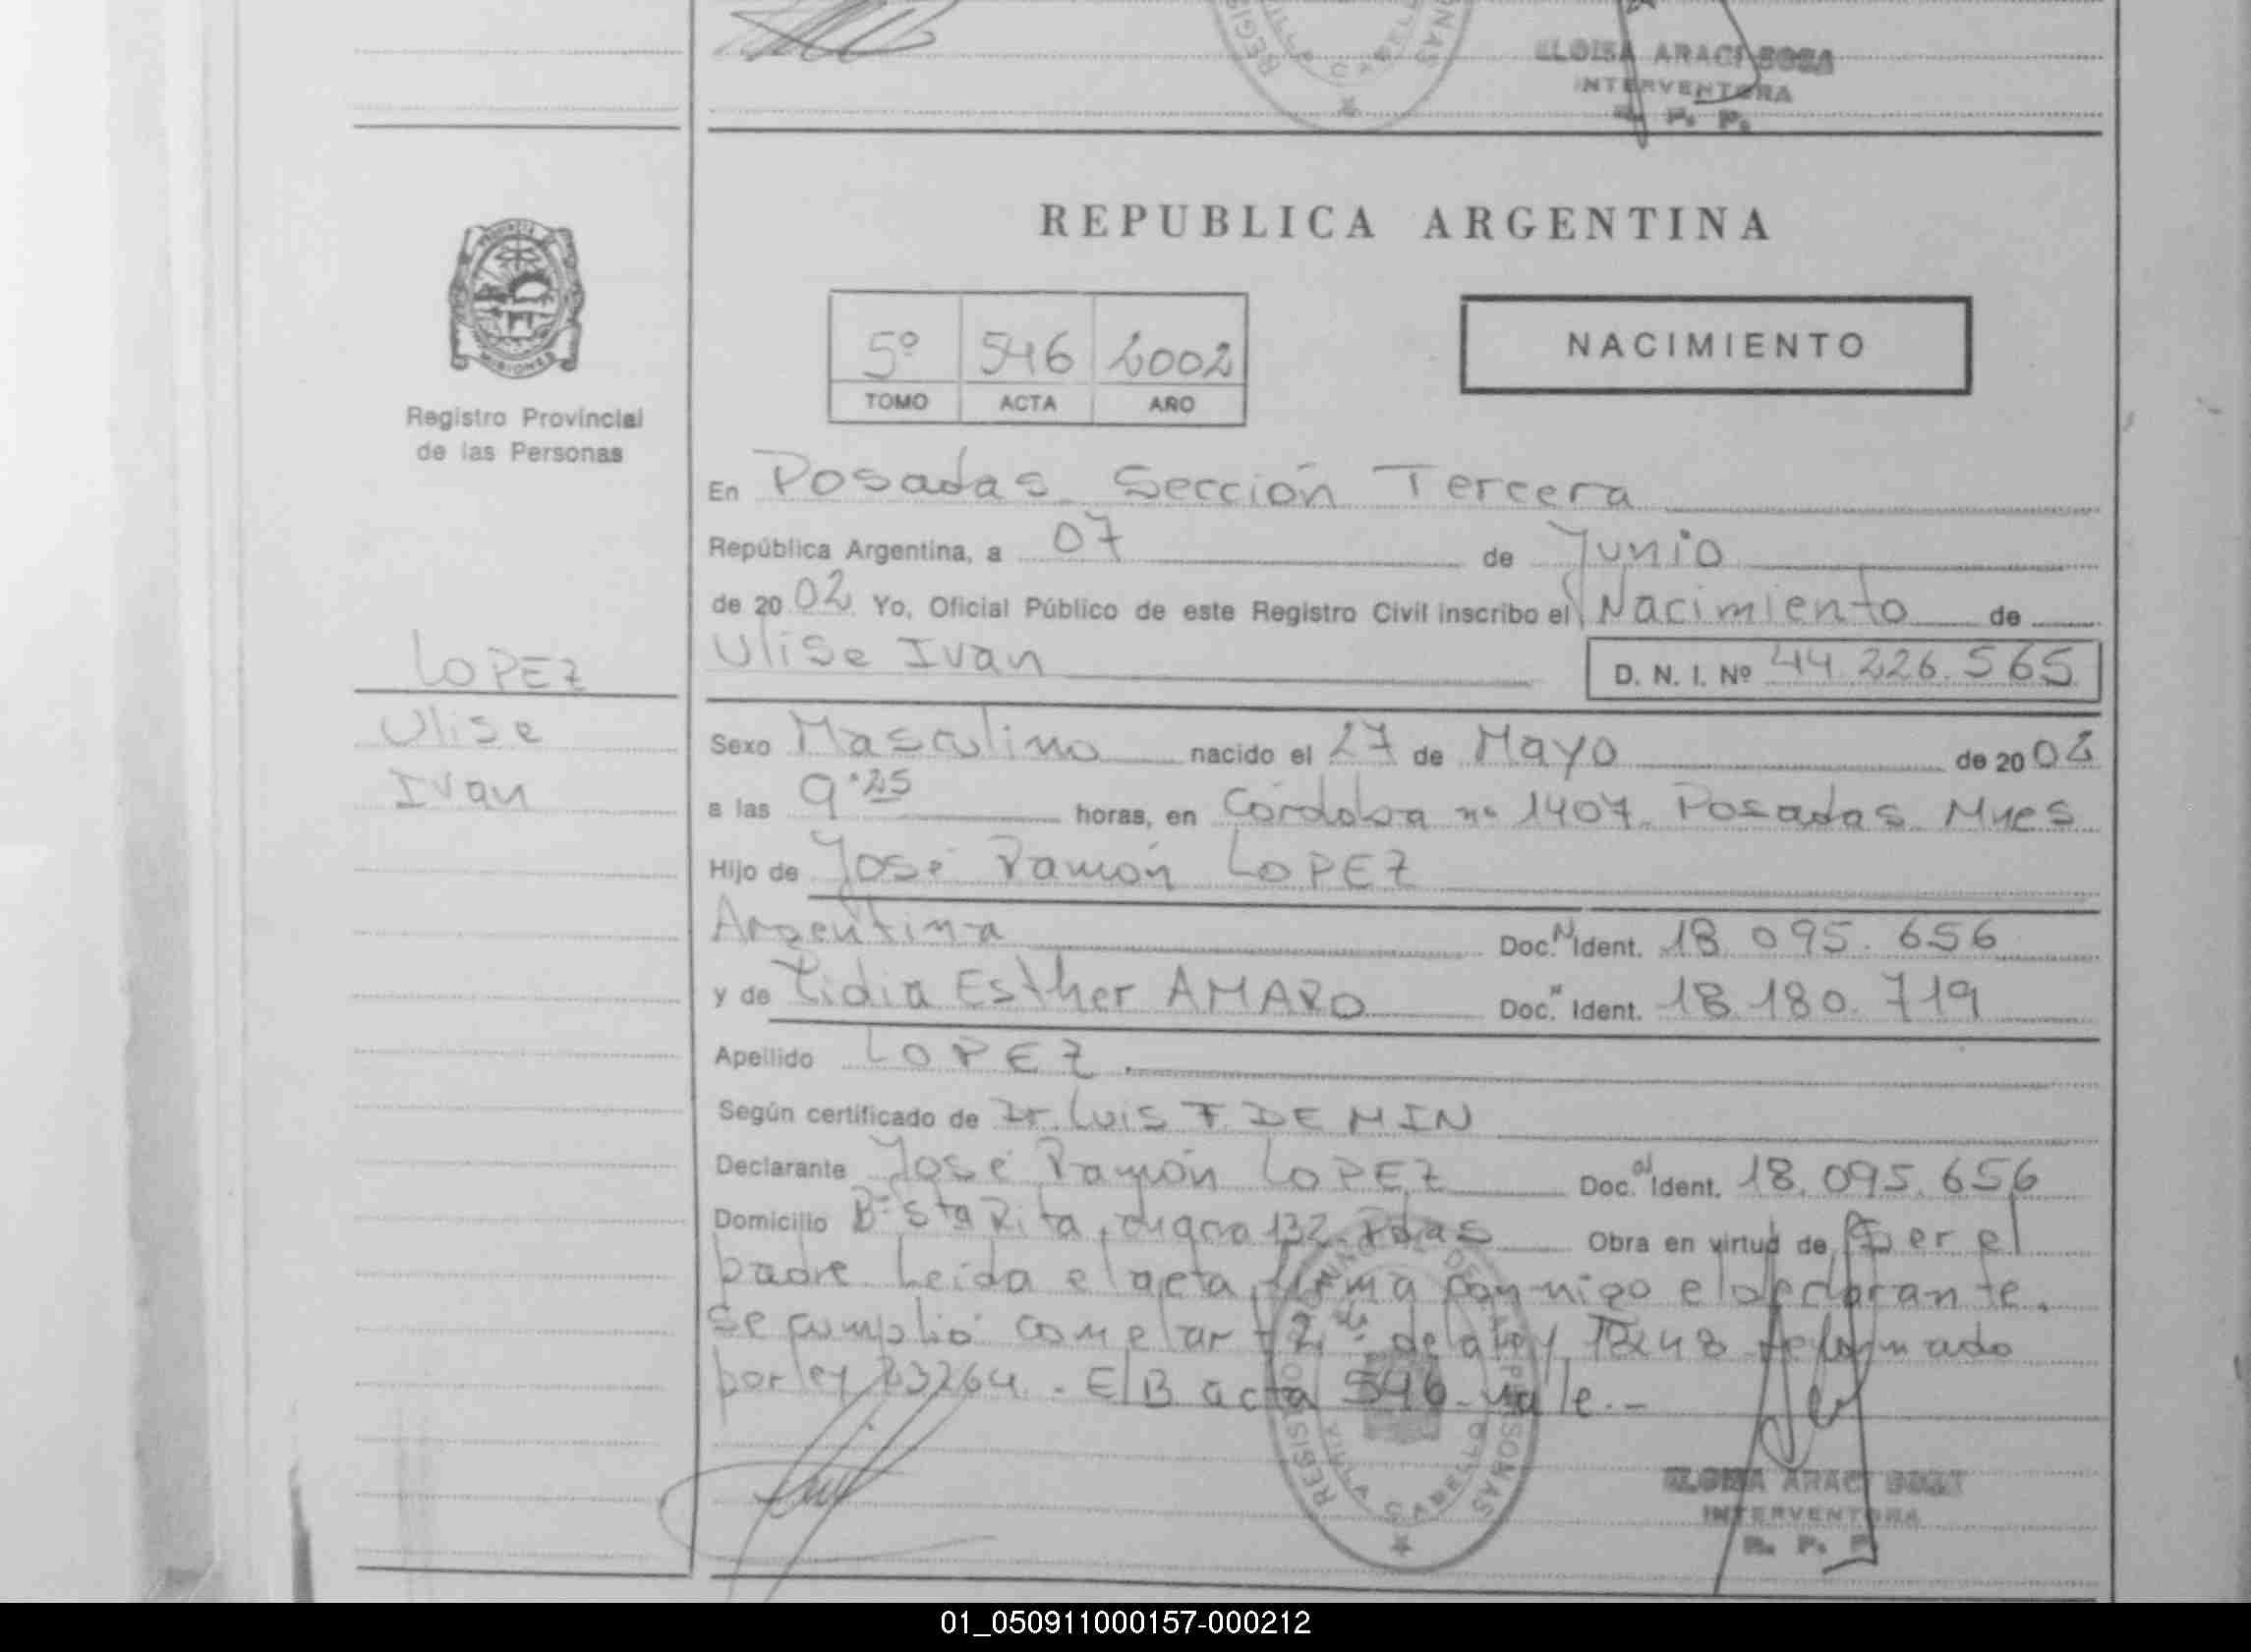 ELOISA ARACI SOSA
INTERVENTORA
R. P. P.
REPUBLICA ARGENTINA
5º 546 2002
TOMO ACTA AÑO
NACIMIENTO
Registro Provincial
de las Personas
En Posadas Sección Tercera
República Argentina, a 07 de Junio
de 20 02 Yo, Oficial Público de este Registro Civil inscribo el Nacimiento de
Ulise Ivan D. N. I. Nº 44.226.565
LOPEZ
Ulise
Ivan
Sexo Masculino nacido el 27 de Mayo de 20 02
a las 9.25 horas, en Córdoba nº 1407. Posadas Mnes
Hijo de José Ramón LOPEZ
Argentina Doc. N Ident. 18.095.656
y de Lidia Esther AMARO Doc. Ident. 18.180.719
Apellido LOPEZ.
Según certificado de Dr. Luis F. DE MIN
Declarante José Ramón LOPEZ Doc. Ident. 18.095.656
Domicilio Bº Sta Rita, 132. Pdas Obra en virtud de Ser el
padre. Leída el acta, firma conmigo el declarante.
Se cumplió con el art 2 de la ley 18248 reformado
por ley 23264. El B acta 546 vale.-
REGISTRO PROVINCIAL DE LAS PERSONAS
VILLA CABELLO
ELOISA ARACI SOSA
INTERVENTORA
R. P. P.
01_050911000157-000212